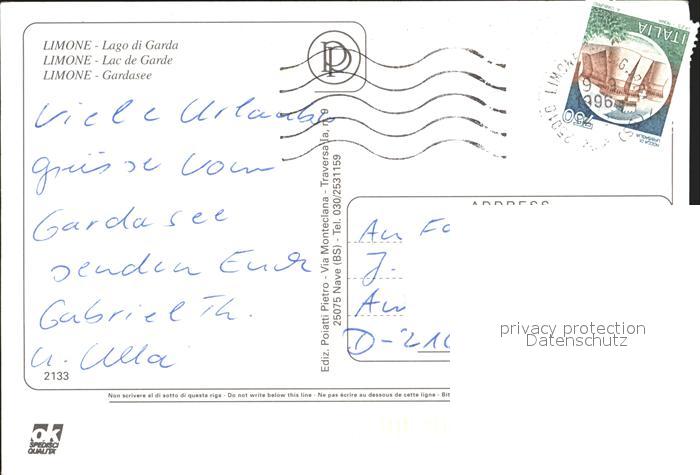 LIMONE - Lago di Garda
LIMONE - Lac de Garde
LIMONE - Gardasee
Viele Urlaubs
grüsse vom
Gardasee
senden Euch
Gabriel Th.
u. Ulla
2133
Ediz. Poiatti Pietro - Via Monteclana - Traversa Ia, n. 9
25075 Nave (BS) - Tel. 030/2531159
ITALIA
750
ROCCA DI
URBISAGLIA
25010 LIMONE
1996
ADDRESS
An Fa
J.
Am
D-210
privacy protection
Datenschutz
Non scrivere al di sotto di questa riga - Do not write below this line - Ne pas écrire au dessous de cette ligne - Bit
ok
SPEDISCI
QUALITÀ